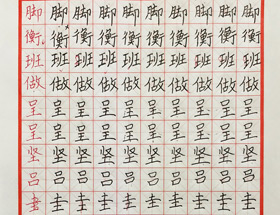 脚脚脚脚脚脚脚脚脚
衡衡衡衡衡衡衡衡衡
班班班班班班班班班
做做做做做做做做做
呈呈呈呈呈呈呈呈呈
呈呈呈呈呈呈呈呈呈
坚坚坚坚坚坚坚坚坚
吕吕吕吕吕吕吕吕吕
圭圭圭圭圭圭圭圭